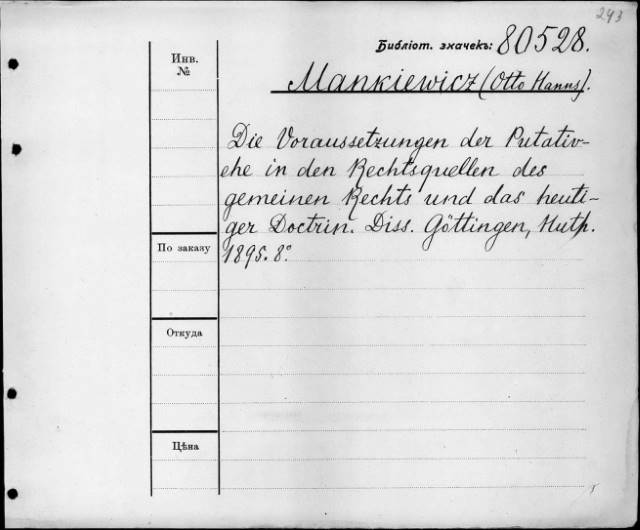 243
Библіот. значекъ: 80528.
Инв.
№
Mankiewicz (Otto Hanns).
Die Voraussetzungen der Putativ-
ehe in den Rechtsquellen des
gemeinen Rechts und das heuti-
ger Doctrin. Diss. Göttingen, Huth.
1895. 8°.
По заказу
Откуда
Цѣна